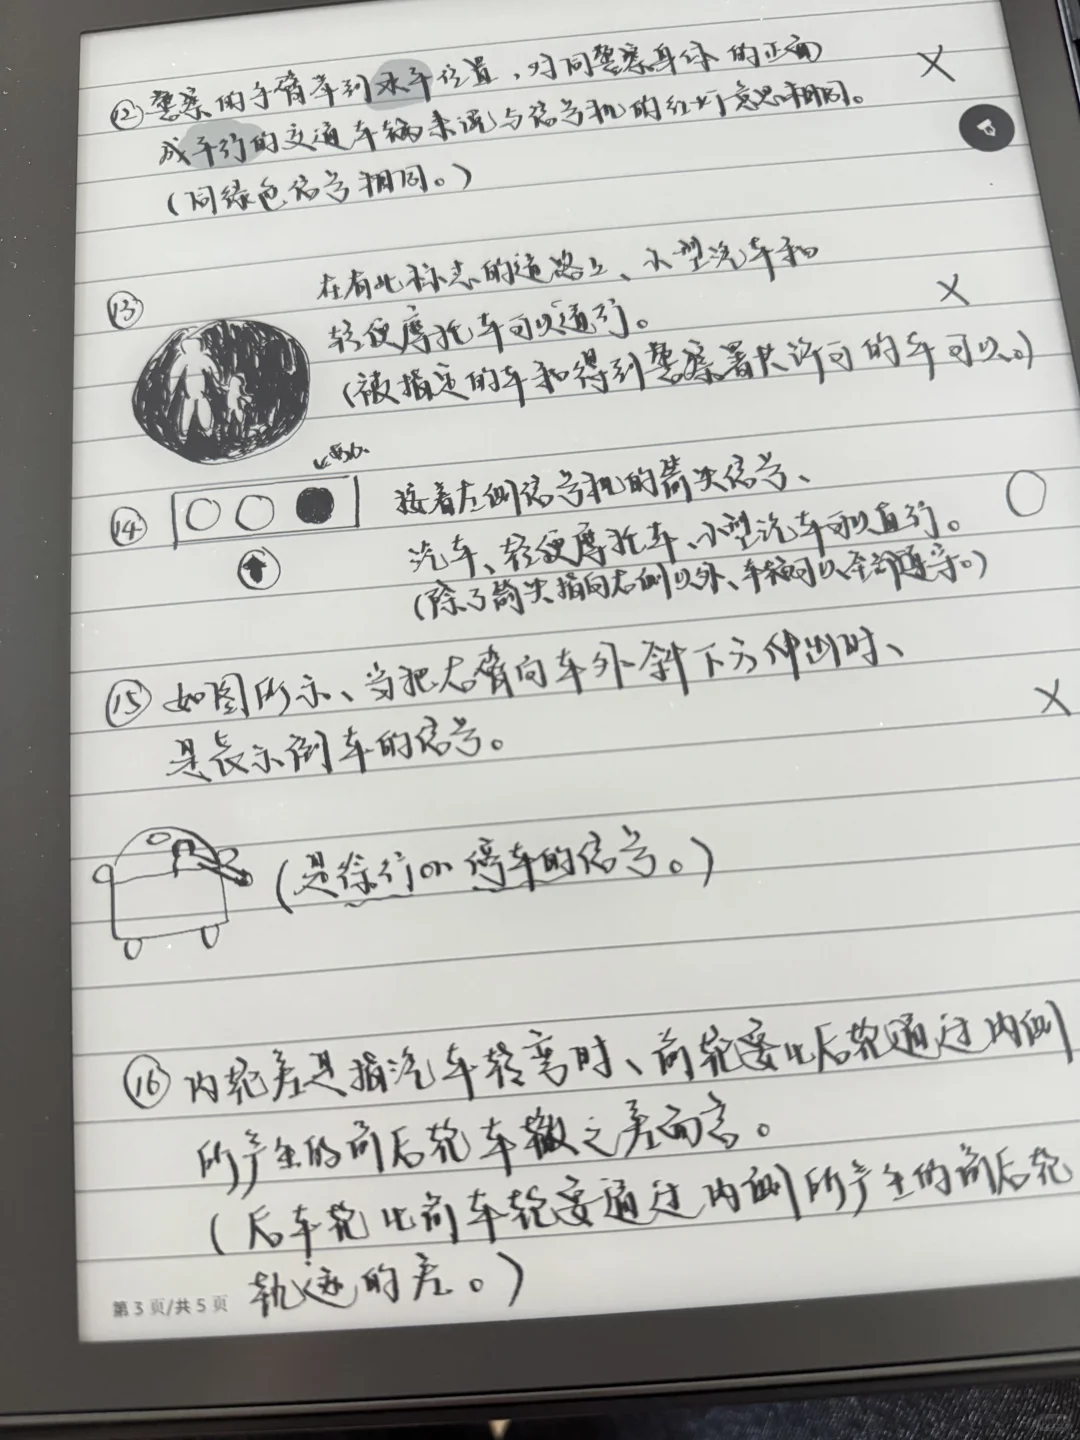 ⑫警察的手臂举到水平位置,对同警察身体的正面
成平行的交通车辆来说与信号机的红灯意思相同。
(同绿色信号相同。)
×
⑬
在有此标志的道路上、小型汽车和
轻便摩托车可以通行。
(被指定的车和得到警察署长许可的车可以。)
×
⑭
接着左侧信号机的箭头信号、
汽车、轻便摩托车、小型汽车可以直行。
(除了箭头指向右侧以外、车辆可以全部通行。)
○
⑮如图所示、当把右臂向车外斜下方伸出时、
是表示倒车的信号。
×
(是徐行on停车的信号。)
⑯内轮差是指汽车转弯时、前轮要比后轮通过内侧
所产生的前后轮车辙之差而言。
(后车轮比前车轮要通过内侧所产生的前后轮
轨迹的差。)
第3页/共5页